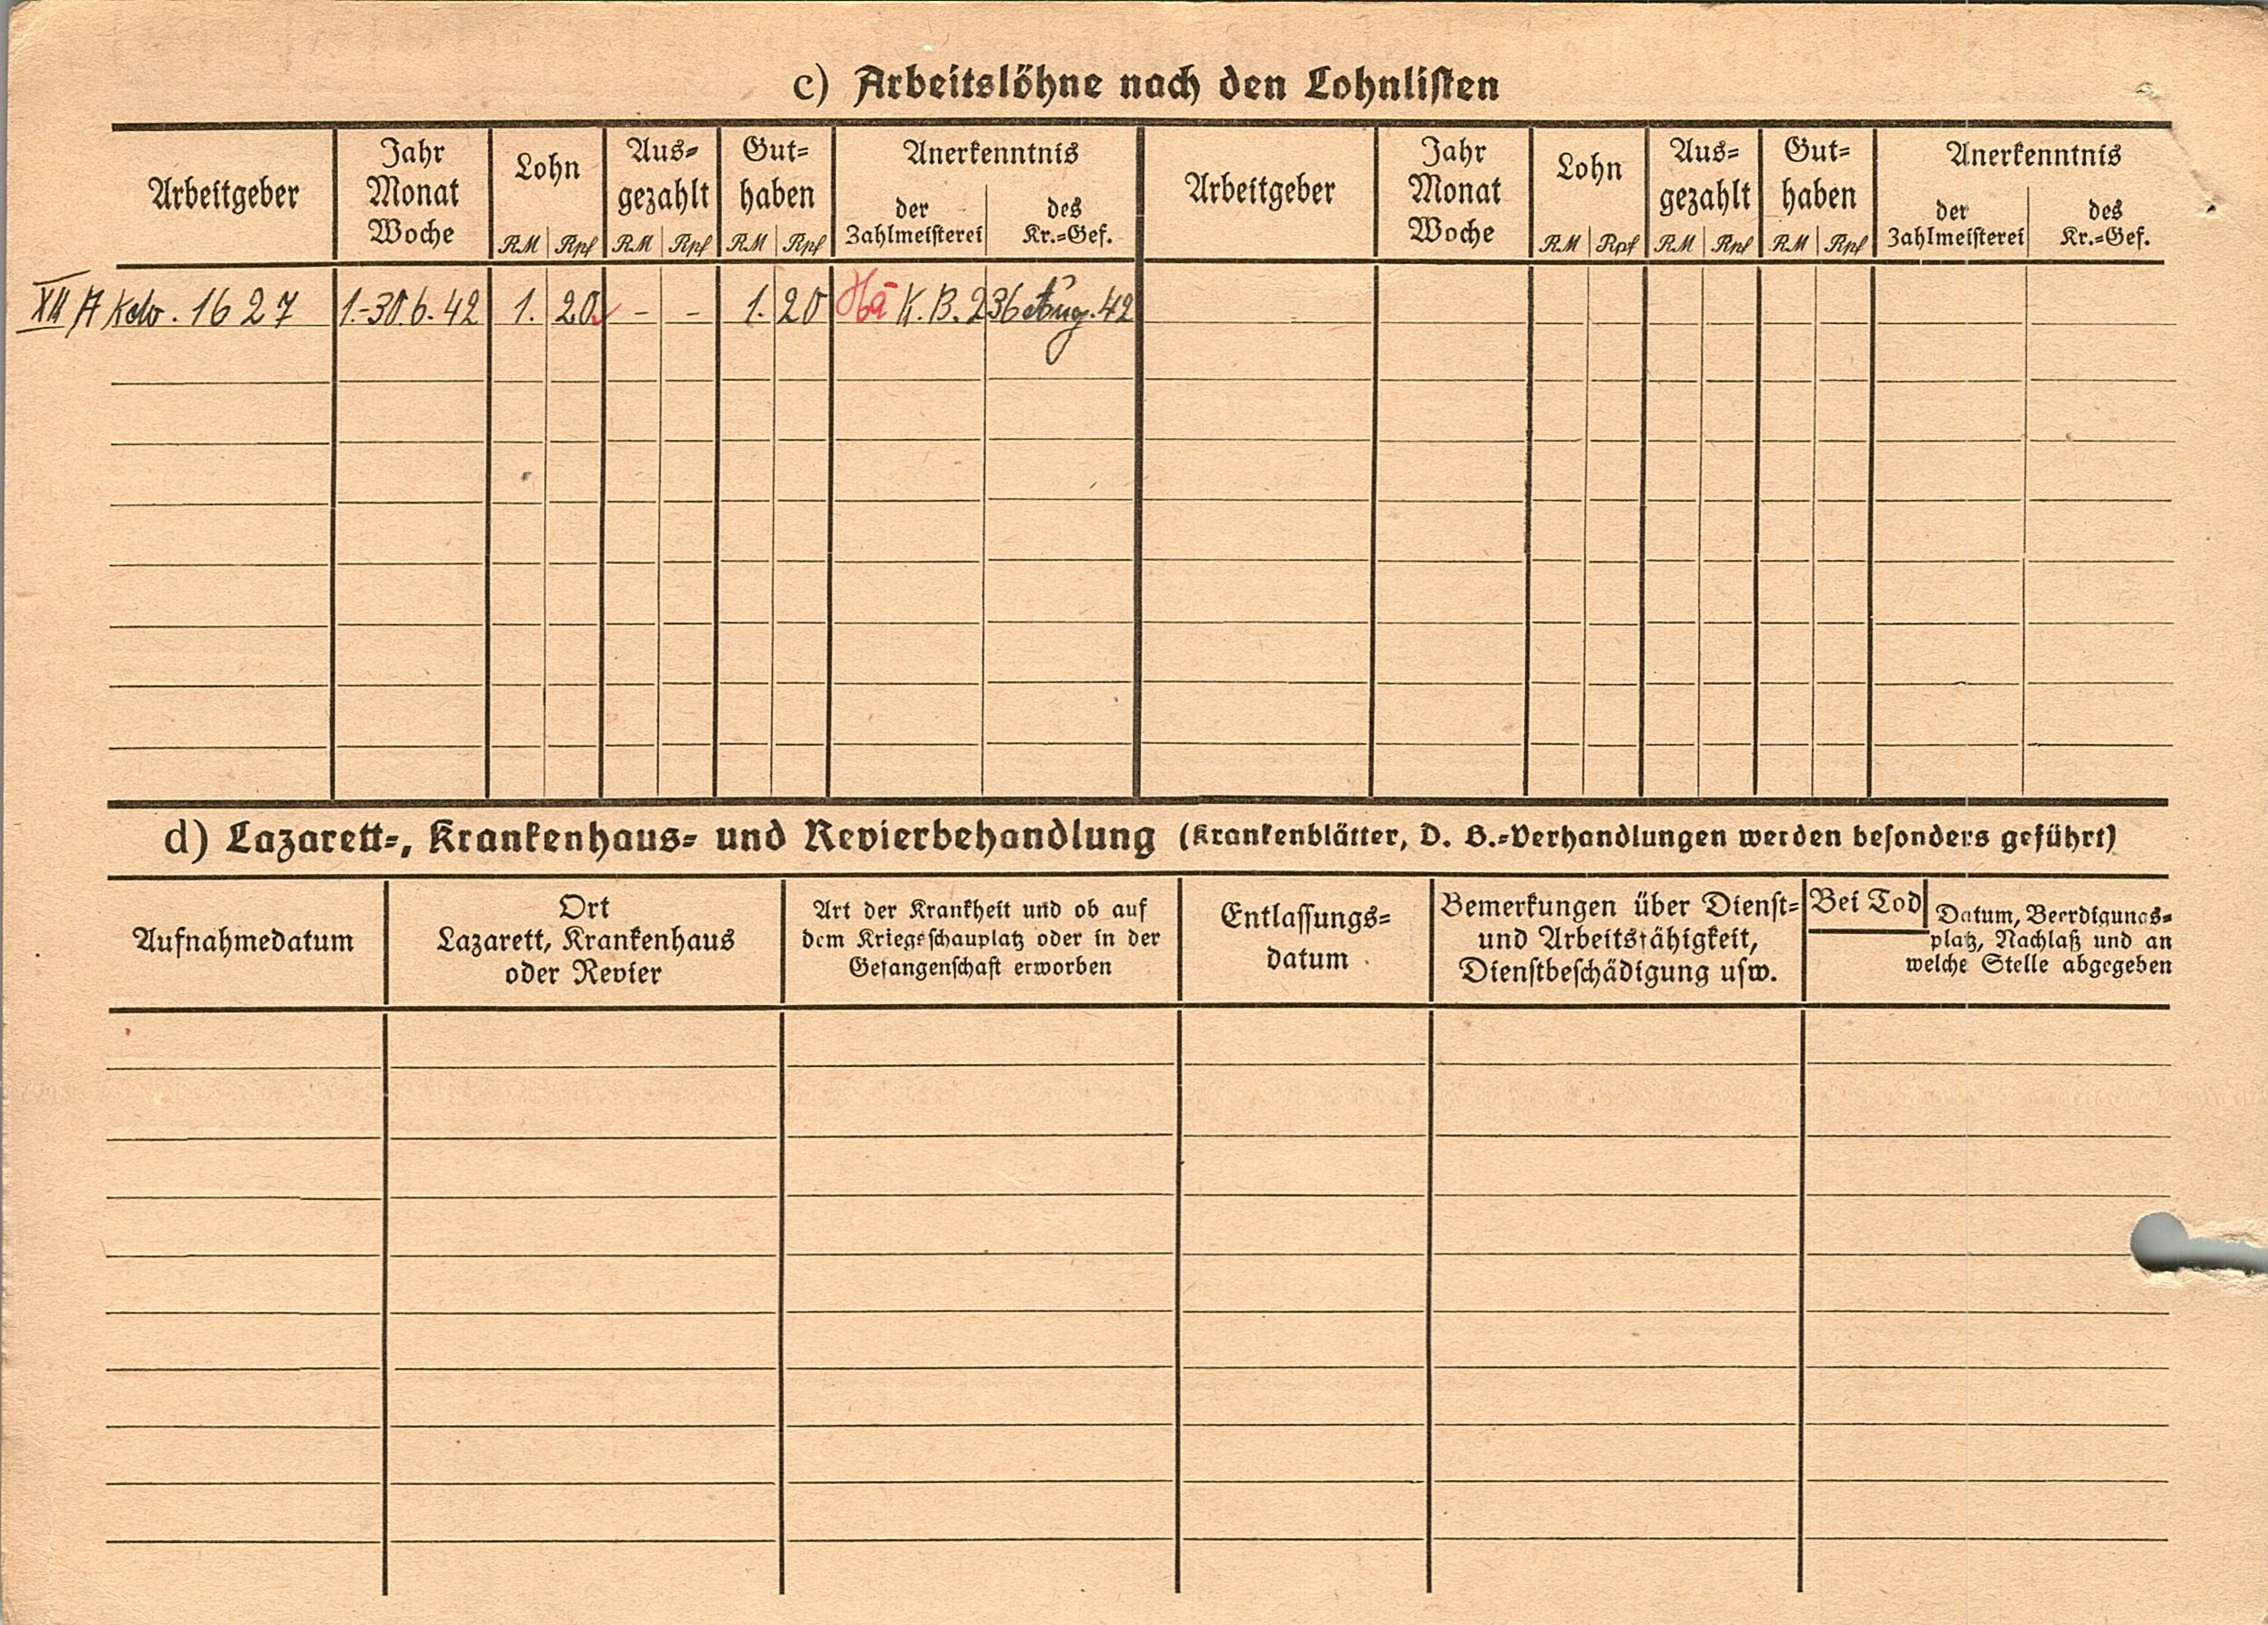 c) Arbeitslöhne nach den Lohnlisten
Arbeitgeber
Jahr
Monat
Woche
Lohn
RM Rpf
Aus-
gezahlt
RM Rpf
Gut-
haben
RM Rpf
Anerkenntnis
der
Zahlmeisterei
des
Kr.=Gef.
Arbeitgeber
Jahr
Monat
Woche
Lohn
RM Rpf
Aus-
gezahlt
RM Rpf
Gut-
haben
RM Rpf
Anerkenntnis
der
Zahlmeisterei
des
Kr.=Gef.
XII A Kdo. 1627 1.-30.6.42 1. 20 - - 1. 20 K.B. 236 Aug. 42
d) Lazarett-, Krankenhaus- und Revierbehandlung (Krankenblätter, D. B.-Verhandlungen werden besonders geführt)
Aufnahmedatum
Ort
Lazarett, Krankenhaus
oder Revier
Art der Krankheit und ob auf
dem Kriegsschauplatz oder in der
Gefangenschaft erworben
Entlassungs-
datum
Bemerkungen über Dienst-
und Arbeitsfähigkeit,
Dienstbeschädigung usw.
Bei Tod
Datum, Beerdigungs-
platz, Nachlaß und an
welche Stelle abgegeben